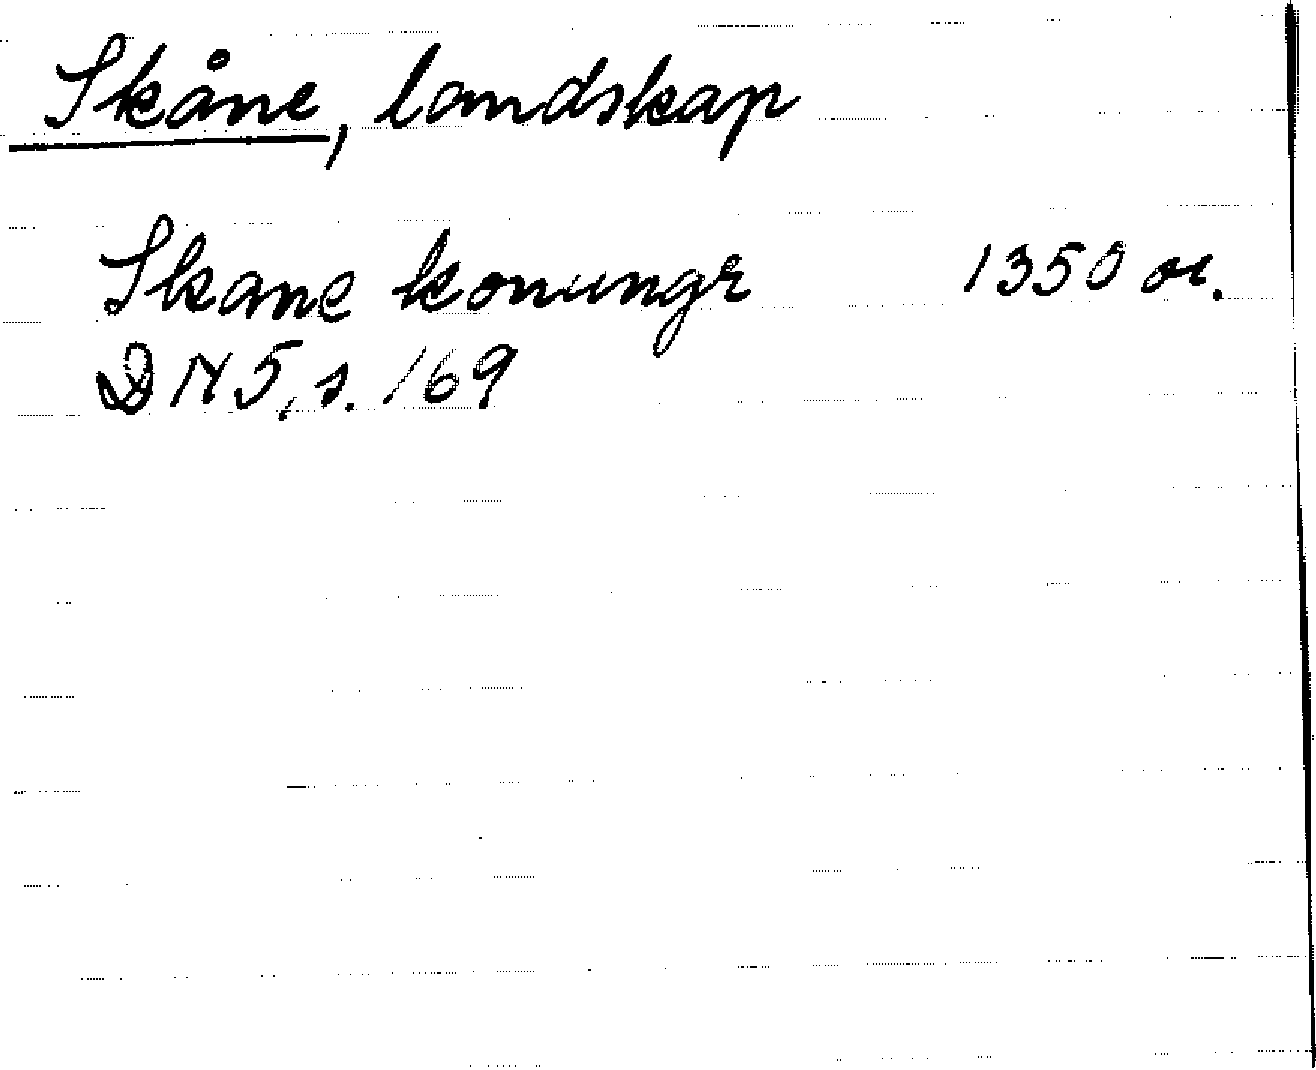 Skåne, landskap
Skane konungr 1350 or.
DN 5, s. 169